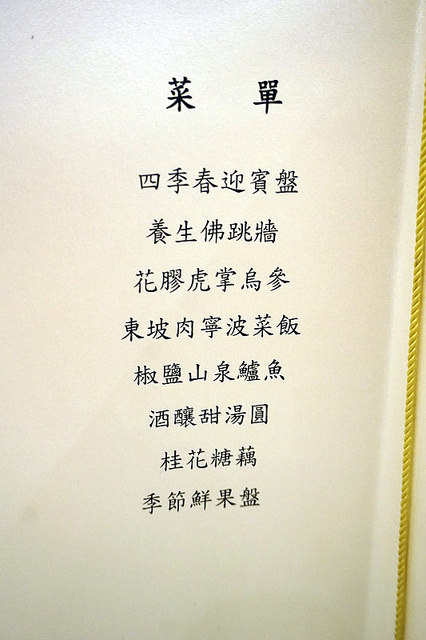 菜單
四季春迎賓盤
養生佛跳牆
花膠虎掌烏參
東坡肉寧波菜飯
椒鹽山泉鱸魚
酒釀甜湯圓
桂花糖藕
季節鮮果盤